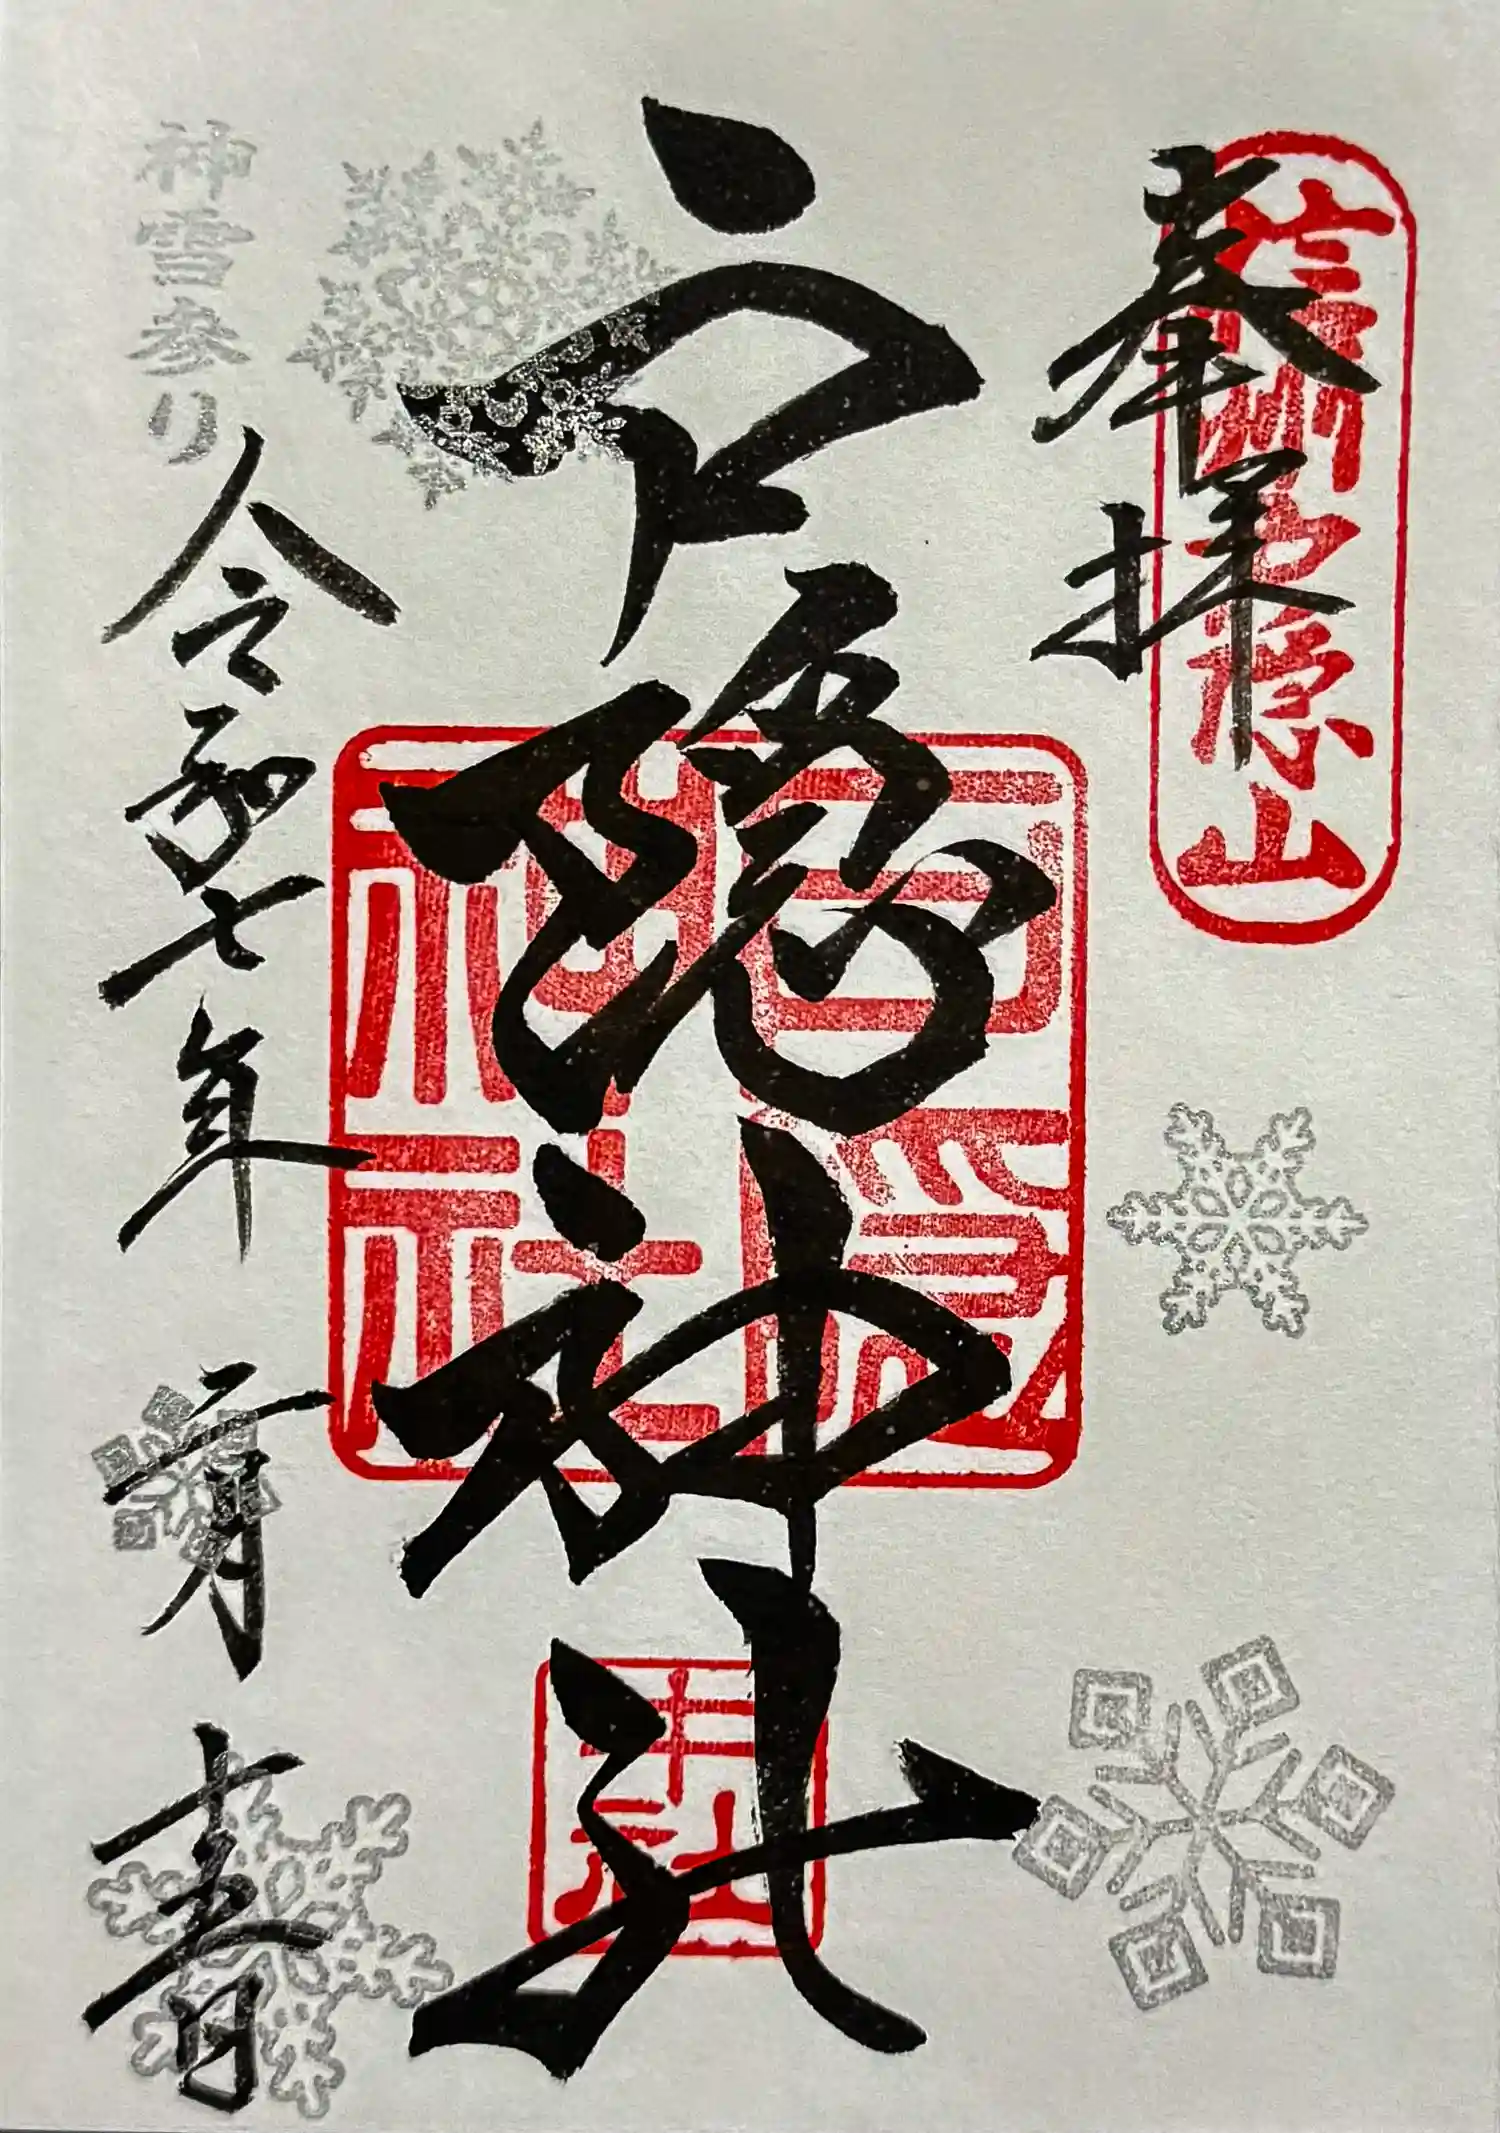 信州戸隠山
奉拝
戸隠神社
戸隠神社
中社
神雪参り
令和七年二月十五日